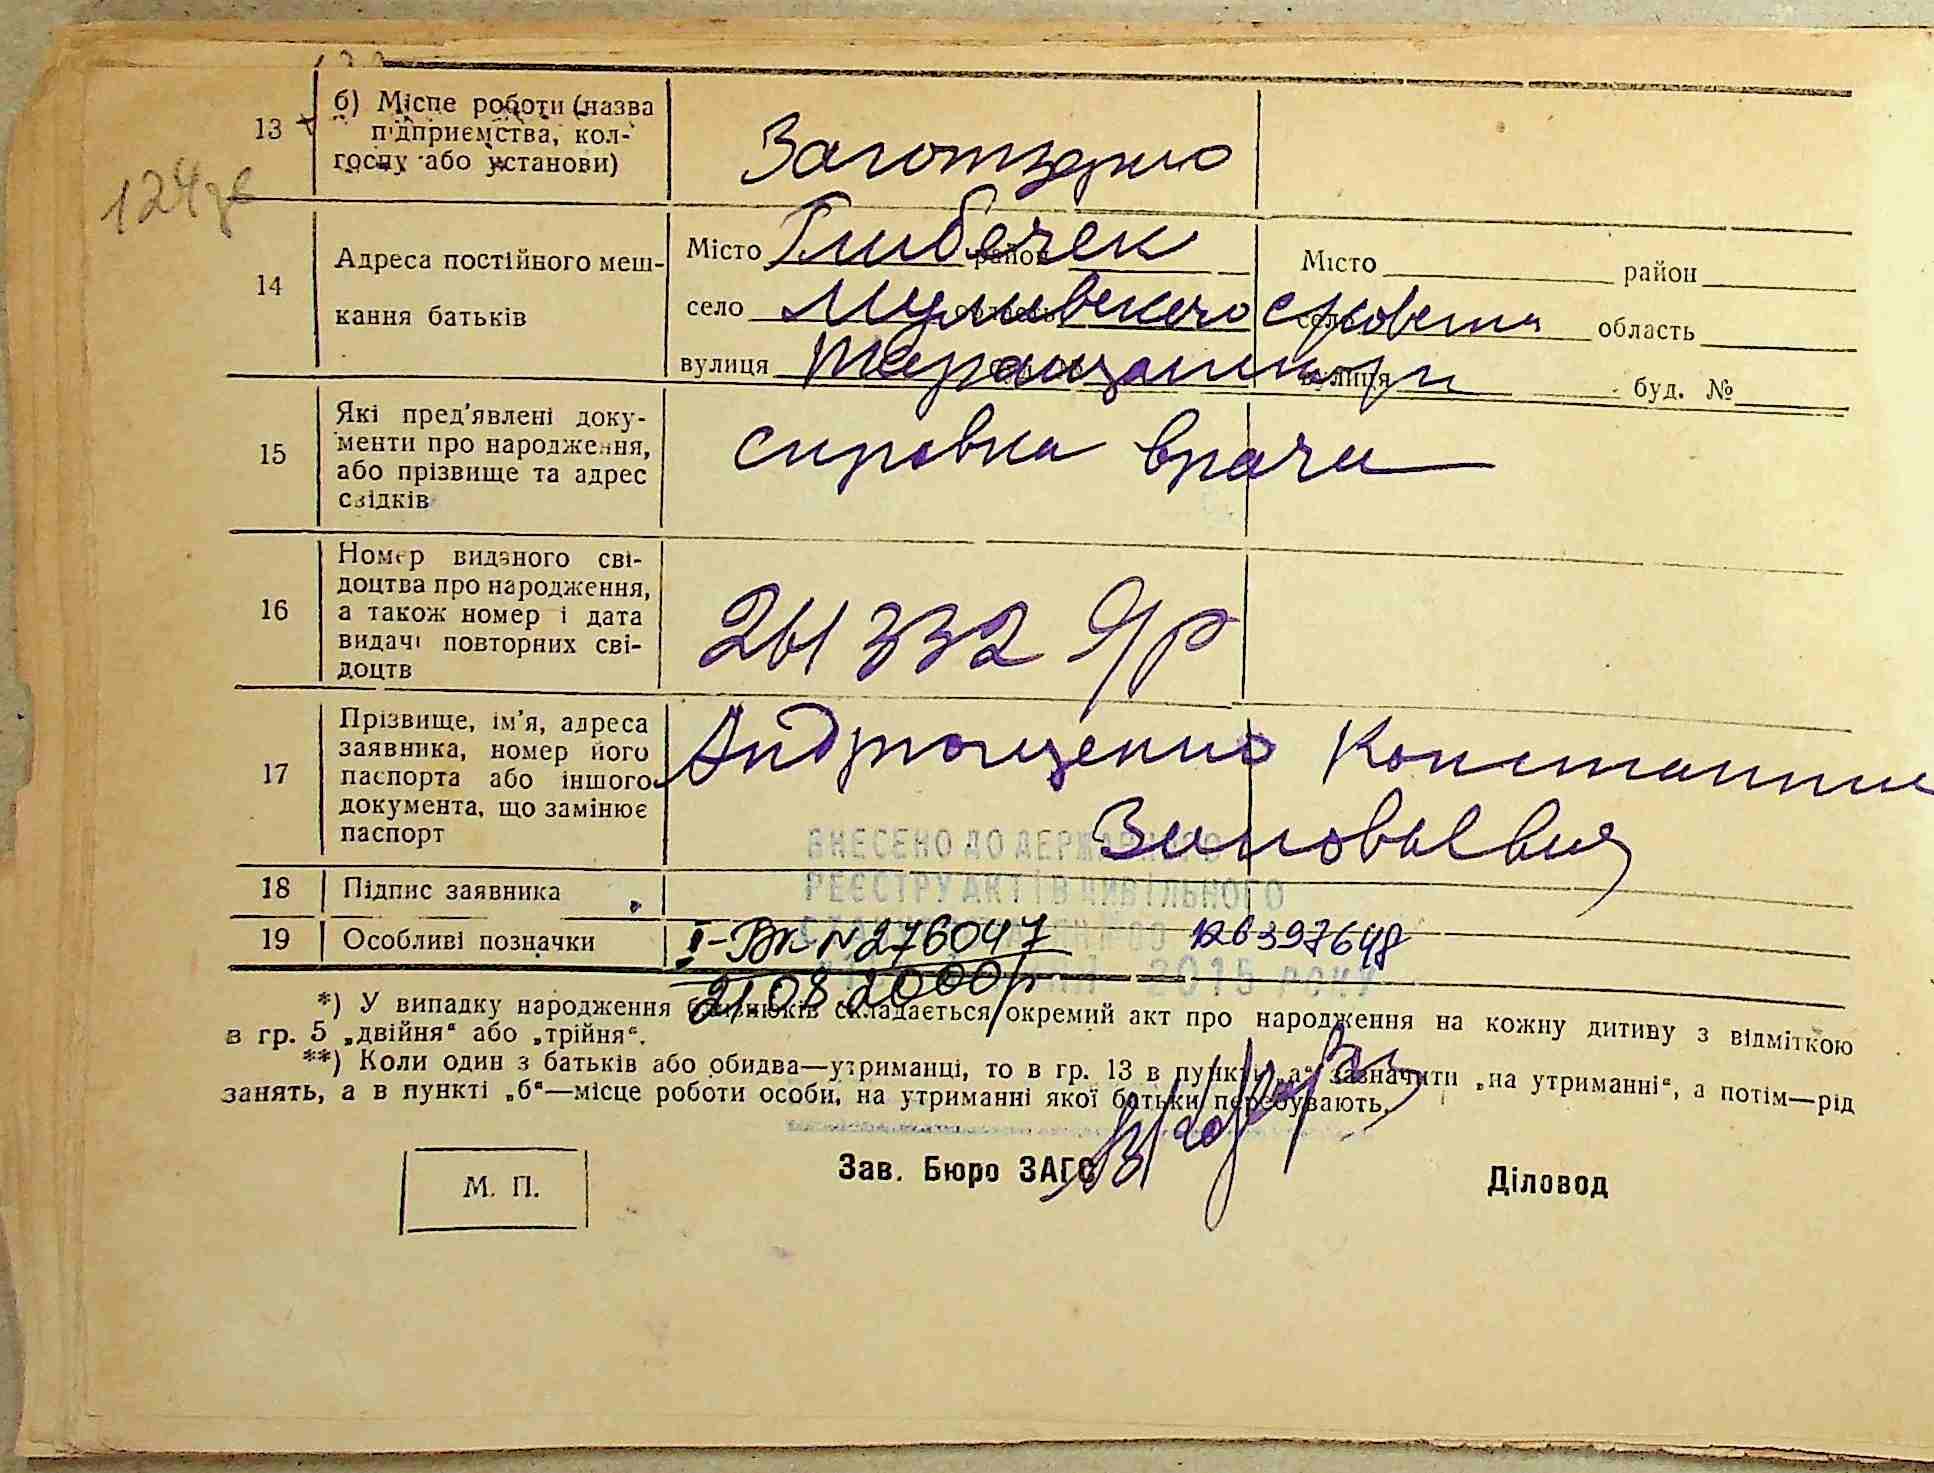 13 б) Місце роботи (назва
підприємства, кол-
госпу або установи)
Заготзерно
124зв
14 Адреса постійного меш-
кання батьків
Місто Глибечек район
село область
вулиця
Місто район
село область
вулиця буд. №
15 Які пред'явлені доку-
менти про народження,
або прізвище та адрес
свідків
справка врача
16 Номер виданого сві-
доцтва про народження,
а також номер і дата
видачі повторних сві-
доцтв
261332 ЯР
17 Прізвище, ім'я, адреса
заявника, номер його
паспорта або іншого
документа, що замінює
паспорт
Андрющенко Константин
Зиновьевич
ВНЕСЕНО ДО ДЕРЖАВНОГО
РЕЄСТРУ АКТІВ ЦИВІЛЬНОГО
2015 року
18 Підпис заявника
19 Особливі позначки
I-ВК N 276047
21.08.2000р
*) У випадку народження близнюків складається окремий акт про народження на кожну дитину з відміткою
в гр. 5 „двійня“ або „трійня“.
**) Коли один з батьків або обидва—утриманці, то в гр. 13 в пункті „а“ зазначити „на утриманні“, а потім—рід
занять, а в пункті „б“—місце роботи особи, на утриманні якої батьки перебувають.
М. П.
Зав. Бюро ЗАГС
Діловод